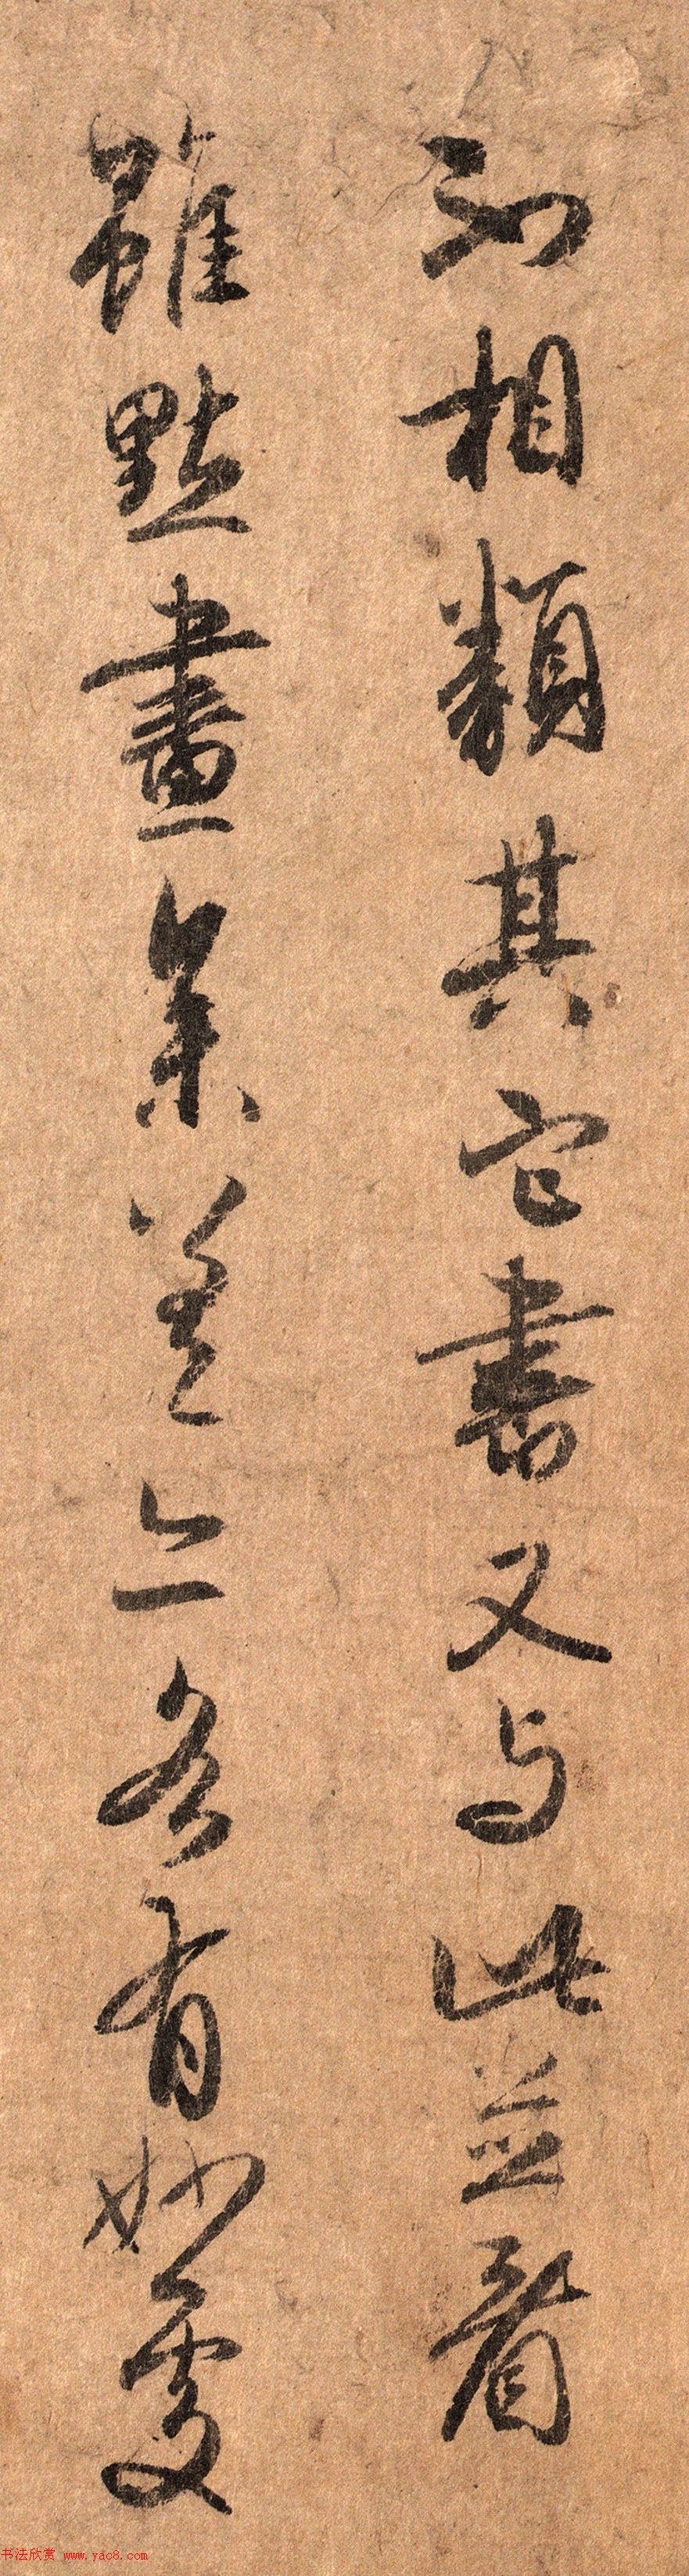 不相類其它書又与此並看
雖點畫参差亦各有妙處
书法欣赏 www.yac8.com